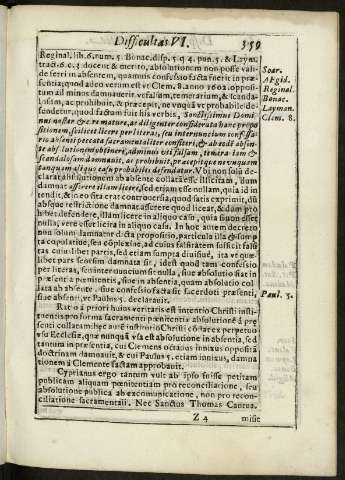 Difficultas VI.
359
Reginal. lib. 6. num. 5. Bonac. disp. 5 q 4. pun. 5. & Laym.
tract. 6. c. 3. docent & merito, absolutionem non posse vali-
de ferri in absentem, quamuis confessio facta fuerit in præ-
sentia; quod adeo verum est vt Clem. 8. anno 1602. opposi-
tum ad minus damnauerit vt falsum, temerarium, & scanda-
losum, ac prohibuit, & præcepit, ne vnquã vt probabile de-
fendetur, quod factum fuit his verbis, Sanctissimus Domi-
nus noster &c. re mature, ac diligenter considerata hanc propo
sitionem, scilicet licere per literas, seu internuncium confessa-
rio absenti peccata sacramentaliter confiteri, & ab eodē absen-
te absolutionem obtinere, ad minus vti falsam, temerariam &
scandalosam damnauit, ac prohibuit, præcepitque ne vnquam
tanquam aliquo casu probabilis defendatur. Vbi non solũ de-
clarat absolutionem ab absente collatã esse illicitam, dum
damnat asserere illam licere, sed etiam esse nullam, quia id in
tendit, & in eo sita erat controuersia, quod satis exprimit, dũ
absque restrictione damnat asserere quod liceat, & dum pro
hibet defendere, illam licere in aliquo casu, quia si non esset
nulla, vere esset licita in aliquo casu. In hoc autem decreto
non solum damnatur dicta propositio, particula illa & sum-
ta copulatiue, seu cōplexiue, ad cuius falsitatem sufficit falsi-
tas cuiuslibet partis, sed etiam sumpta diuisiue, ita vt quæ-
libet pars sensum damnata sit, idest quod tam confessio
per literas, seu internuncium sit nulla, siue absolutio fiat in
præsentia pœnitentis, siue in absentia, quam absolutio col-
lata ab absente, siue confessio facta sit sacerdoti præsenti,
siue absenti, vt Paulus 5. declarauit.
Ratio à priori huius veritatis est intentio Christi insti-
tuentis pro forma sacramenti pœnitentiæ absolutionē à præ
senti collatam: hæc autē institutio Christi cōstat ex perpetuo
vsu Ecclesiæ, quæ nunquã vsa est absolutione in absentia, sed
tantum in præsentia, cui Clemens octauus innixus oppositã
doctrinam damnauit, & cui Paulus 5. etiam innixus, damna
tionem à Clemente factam approbauit.
Cyprianus ergo tantum vult ab ipso fuisse petitam
publicam aliquam pœnitentiam pro reconciliatione, seu
absolutione publica ab excomunicatione, non pro recon-
ciliatione sacramentali. Nec Sanctus Thomas Cantua.
Z 4
misit
Soar.
AEgid.
Reginal.
Bonac.
Layman.
Clem. 8.
Paul. 5.